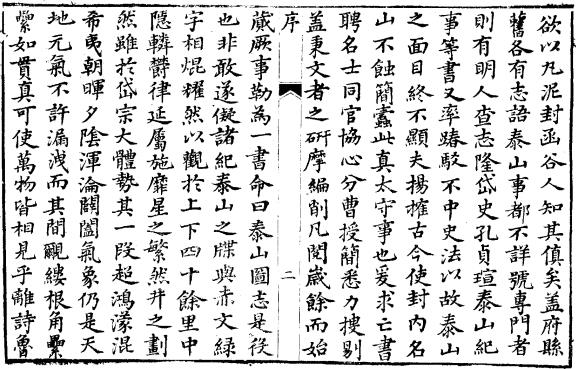 欲以凡泥封函谷人知其傎矣蓋府縣
舊各有志語泰山事都不詳號專門者
則有明人查志隆岱史孔貞瑄泰山紀
事等書又率踳駁不中史法以故泰山
之面目終不顯夫揚搉古今使封內名
山不蝕簡蠹此真太守事也爰求亡書
聘名士同官協心分曹授簡悉力搜剔
蓋秉文者之硏摩編削凡閱歲餘而始
序
二
蕆厥事勒為一書命曰泰山圖志是役
也非敢遂儗諸紀泰山之牒與赤文綠
字相焜耀然以觀於上下四十餘里中
隱轔鬱律延屬施靡星之繁然井之劃
然雖於岱宗大體勢其一段超鴻濛混
希夷朝暉夕陰渾淪闢闔氣象仍是天
地元氣不許漏洩而其間覼縷根角纍
纍如貫真可使萬物皆相見乎離詩魯